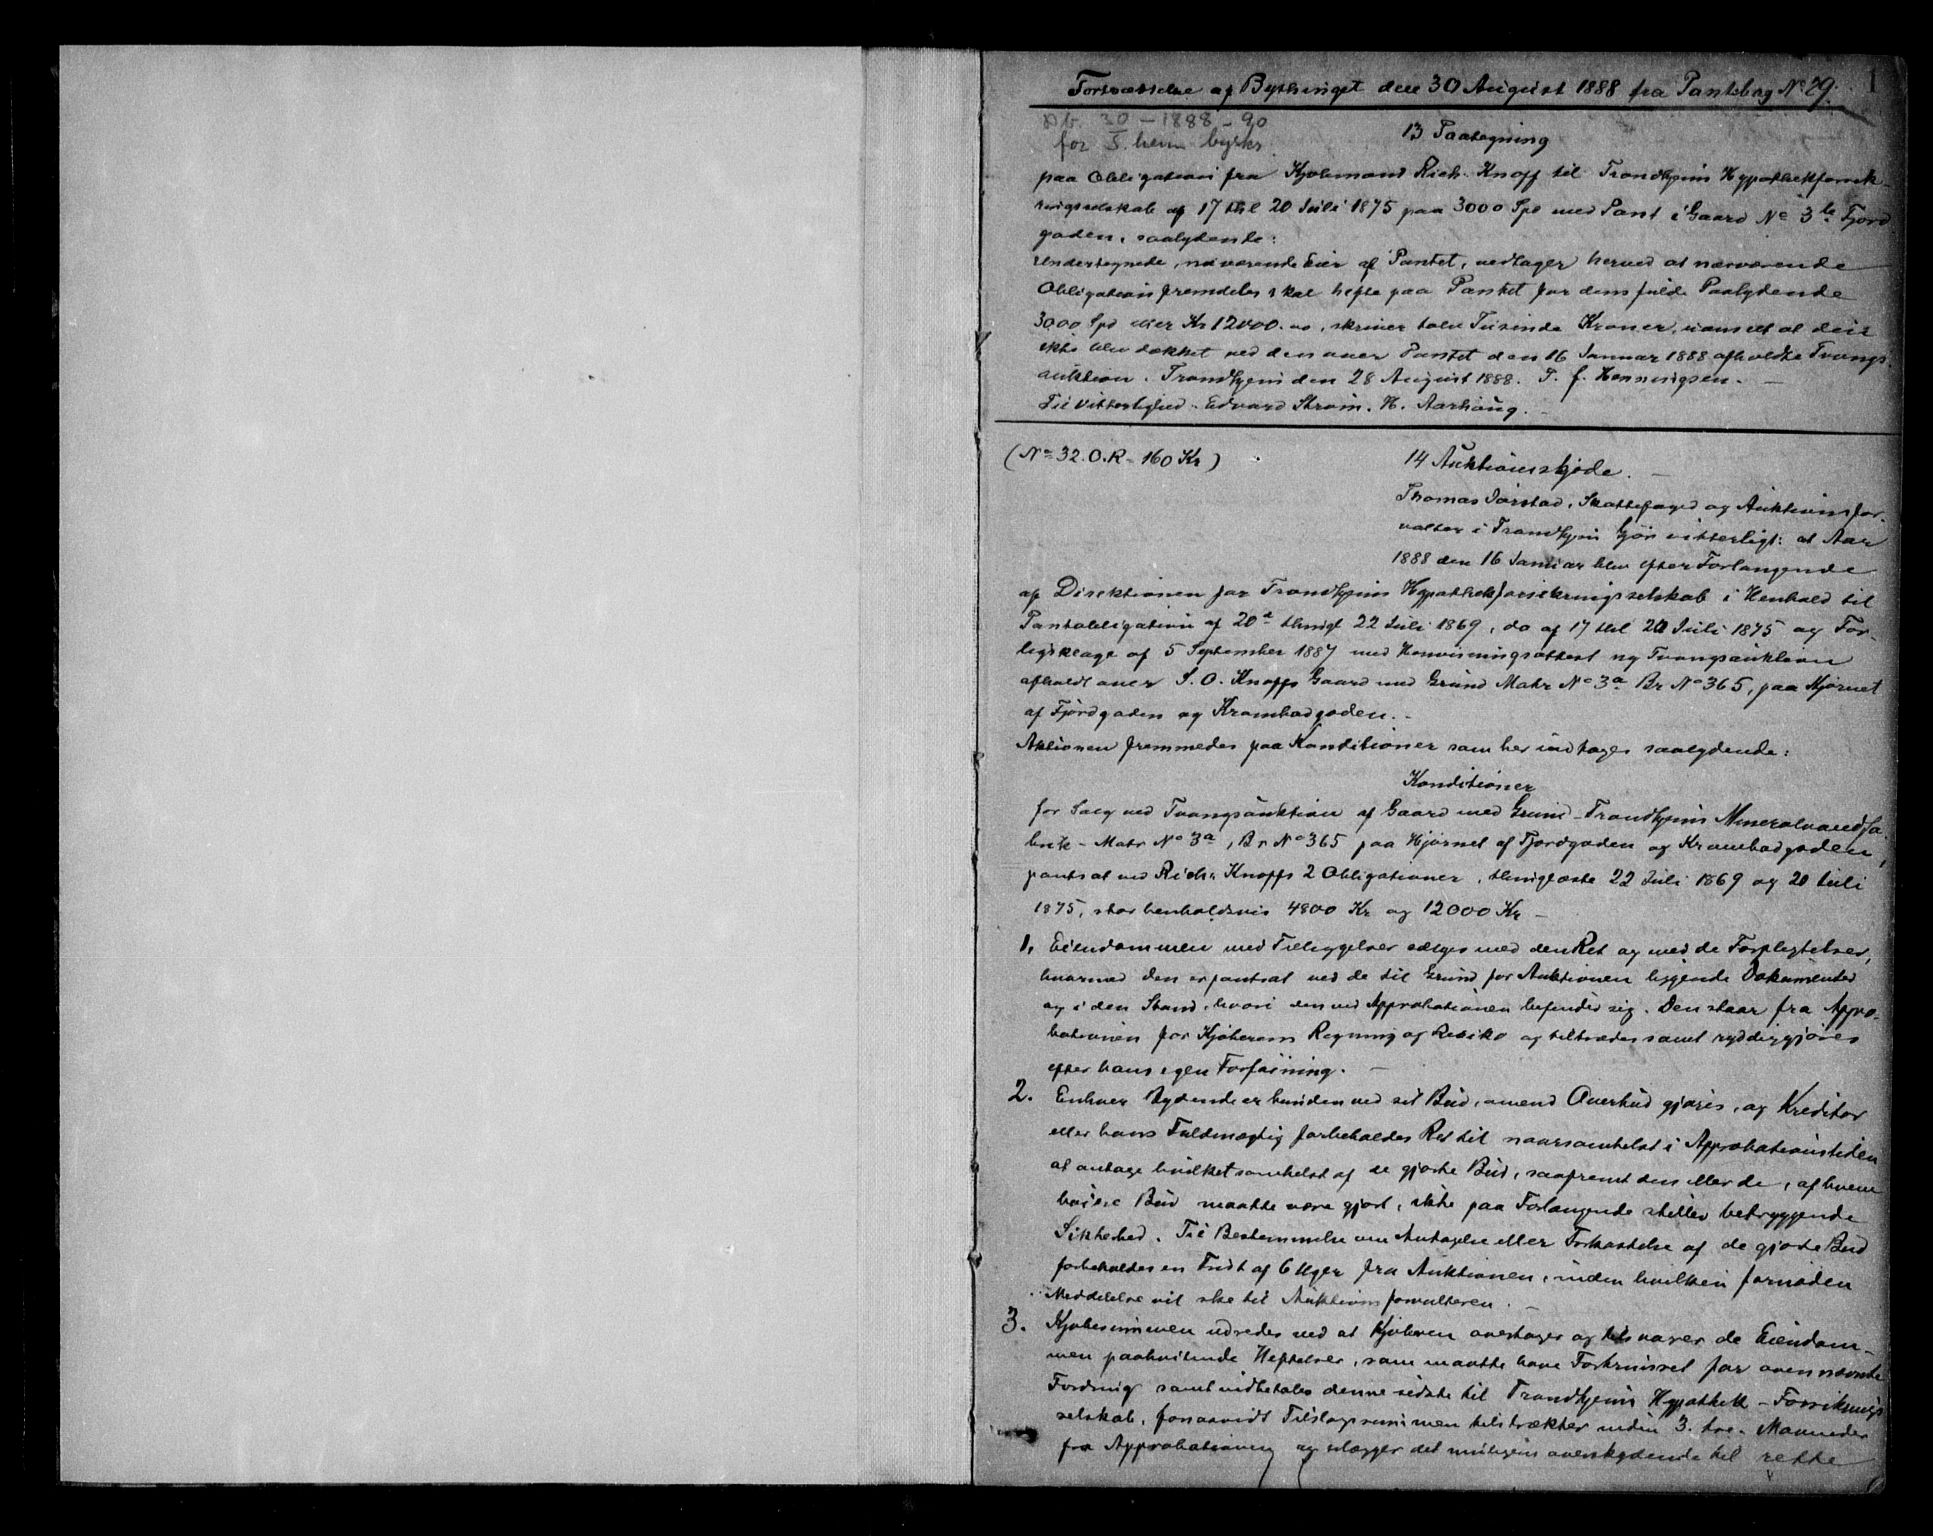 Fortsættelse af Bythinget den 30 August 1888 fra Pantebog No 29.
1
Pb. 30 - 1888 - 90
for T.heim byskr.
13 Paategning
paa Obligation fra Kjøbmand Rich. Knoff til Trondhjems Hypothekforsik-
ringsselskab af 17 thl 20 Juli 1875 paa 3000 Spd med Pant i Gaard No 3 Fjord
gaden, saalydende:
Undertegnede, nuværende Eier af Pantet, vedtager herved at nærværende
Obligation fremdeles skal hefte paa Pantet for dens fulde Paalydende
3000 Spd eller Kr 12000.00, skriver tolv Tusinde Kroner, uanset at den
ikke blev dækket ved den over Pantet den 16 Januar 1888 afholdte Tvangs
auktion. Trondhjem den 28 August 1888. T. f. Henningsen. -
Til Vitterlighed. Edvard Strøm. H. Aarhaug. -
(No 32. O.R - 160 Kr)
14 Auktionsskjøde. -
Thomas Jørstad, Skattefoged og Auktionsfor-
valter i Trondhjem Gjør vitterligt: at Aar
1888 den 16 Januar blev efter Forlangende
af Direktionen for Trondhjems Hypothekforsikringsselskab i Henhold til
Pantobligation af 20 thingl 22 Juli 1869, do af 17 thl 20 Juli 1875 og For-
ligsklage af 5 September 1887 med Henvisningsattest ny Tvangsauktion
afholdt over S. O. Knoffs Gaard med Grund Matr No 3a Br No 365, paa Hjørnet
af Fjordgaden og Krambodgaden. -
Aktionen fremmedes paa Konditioner som her indtages saalydende:
Konditioner
for Salg ved Tvangsauktion af Gaard med Grund - Trondhjems Mineralvandfa
brik - Matr No 3a, Br No 365 paa Hjørnet af Fjordgaden og Krambodgaden,
pantsat ved Rich. Knoffs 2 Obligationer, thinglæste 22 Juli 1869 og 20 Juli
1875, stor henholdsvis 4800 Kr og 12000 Kr -
1. Eiendommen med Tilliggelser sælges med den Ret og med de Forpligtelser,
hvormed den er pantsat ved de til Grund for Auktionen liggende Dokumenter
og i den Stand, hvori den ved Approbationen befinder sig. Den staar fra Appro-
bationen for Kjøberens Regning og Risiko og tiltrædes samt ryddiggjøres
efter hans egen Forføining. -
2. Enhver Bydende er bunden ved sit Bud, omend Overbud gjøres, og Kreditor
eller hans Fuldmægtig forbeholdes Ret til naarsomhelst i Approbationstiden
at antage hvilketsomhelst af de gjorte Bud, saafremt den eller de, af hvem
høiere Bud maatte være gjort, ikke paa Forlangende stiller betryggende
Sikkerhed. Til Bestemmelse om Antagelse eller Forkastelse af de gjorte Bud
forbeholdes en Frist af 6 Uger fra Auktionen, inden hvilken fornøden
Meddelelse vil ske til Auktionsforvalteren. -
3. Kjøbesummen udredes ved at Kjøberen overtager og tilsvarer de Eiendom-
men paahvilende Heftelser, som maatte have Fortrinsret for ovennævnte
Fordring samt udbetaler denne sidste til Trondhjems Hypothek-Forsikrings
selskab, forsaavidt Tilslagssummen tilstrækker inden 3. tre. Maaneder
fra Approbationen og erlægger det muligens overskydende til rette